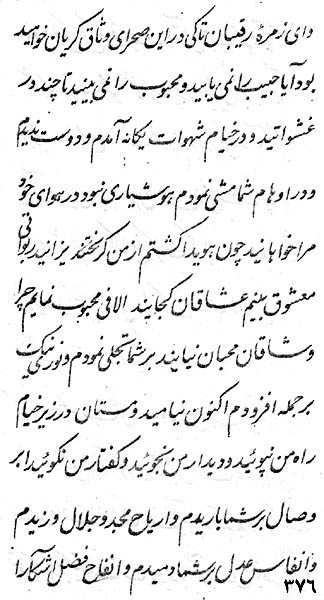 وای زمرهٔ رقیبان تا کی در این صحرای وثاق گریان خواهید
بود آیا حبیب را نمی یابید و محبوب را نمی بینید تا چند در
غشواتید و در خیام شهوات یگانه آمدم و دوست ندیدم
و در اوهام شما مشی نمودم هوشیاری نبود در هوای خود
مرا خواهانید چون هویدا گشتم از من گریختند یزانید ربوانی
معشوق بینم عشاقان کجایند الا فی محبوب نمایم چرا
وشاقان محبان نیایند بر شما تجلی نمودم و نوری نیک
بر جمله افزودم اکنون نیامید وستان در زیر خیام
راه من نپوئید و دیدار من نجوئید و گفتار من نگوئید ابر
وصال بر شما باریدم و اریاح مجد و جلال وزیدم
وانفاس عدل بر شما دمیدم و انفاح فضل آشکارا
۳۷۶